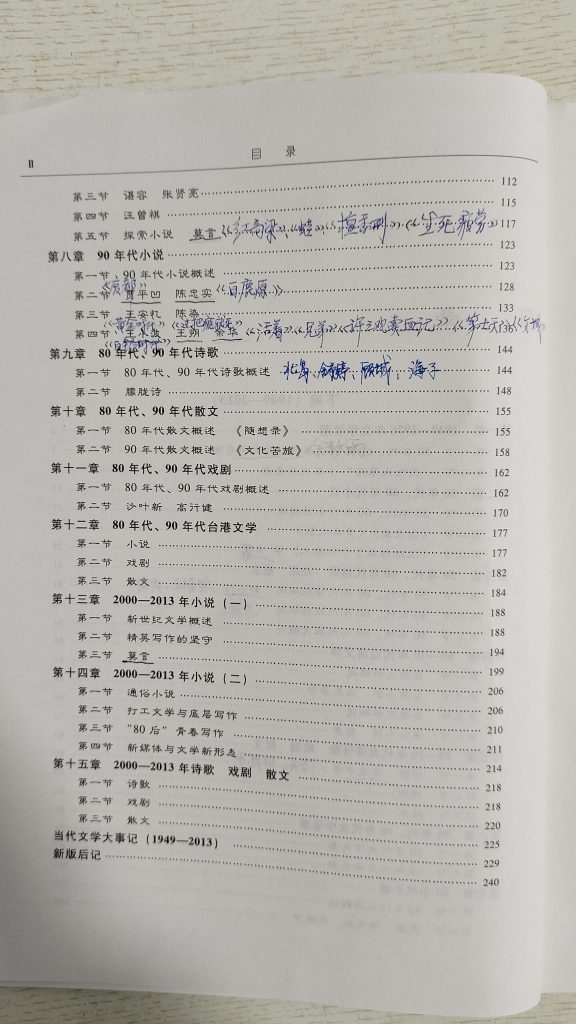 II 目 录
第三节 谌容 张贤亮 112
第四节 汪曾祺 115
第五节 探索小说 莫言《红高粱》、《蛙》、《檀香刑》、《生死疲劳》 117
第八章 90年代小说 123
第一节 90年代小说概述 123
《废都》
第二节 贾平凹 陈忠实《白鹿原》 128
第三节 王安忆 陈染 133
《黄金时代》
第四节 王小波 王朔 余华《活着》《兄弟》《许三观卖血记》、《第七天》
第九章 80年代、90年代诗歌 144
第一节 80年代、90年代诗歌概述 北岛、舒婷、顾城、海子 144
第二节 朦胧诗 148
第十章 80年代、90年代散文 155
第一节 80年代散文概述 《随想录》 155
第二节 90年代散文概述 《文化苦旅》 158
第十一章 80年代、90年代戏剧 162
第一节 80年代、90年代戏剧概述 162
第二节 沙叶新 高行健 170
第十二章 80年代、90年代台港文学 177
第一节 小说 177
第二节 戏剧 182
第三节 散文 184
第十三章 2000—2013年小说(一) 188
第一节 新世纪文学概述 188
第二节 精英写作的坚守 194
第三节 莫言 199
第十四章 2000—2013年小说(二) 206
第一节 通俗小说 206
第二节 打工文学与底层写作 210
第三节 “80后”青春写作 211
第四节 新媒体与文学新形态 214
第十五章 2000—2013年诗歌 戏剧 散文 218
第一节 诗歌 218
第二节 戏剧 220
第三节 散文 225
当代文学大事记(1949—2013) 229
新版后记 240